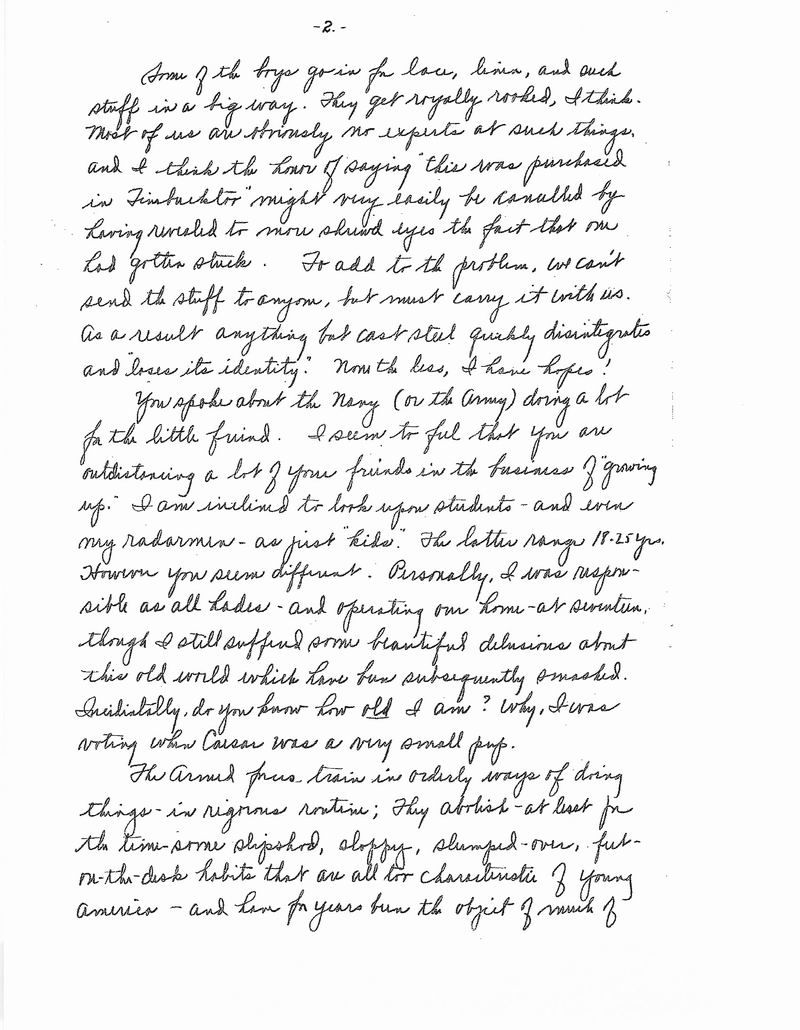 -2.-
Some of the boys go in for lace, linen, and such
stuff in a big way. They get royally rooked, I think.
Most of us are obviously no experts at such things,
and I think the honor of saying "this was purchased
in Timbucktoo" might very easily be cancelled by
having revealed to more shrewd eyes the fact that one
had gotten stuck. To add to the problem, we can't
send the stuff to anyone, but must carry it with us.
As a result anything but cast steel quickly disintegrates
and "loses its identity". None the less, I have hopes!
You spoke about the Navy (or the Army) doing a lot
for the little friend. I seem to feel that you are
outdistancing a lot of your friends in the business of "growing
up." I am inclined to look upon students - and even
my radarmen - as just "kids". The latter range 18-25 yrs.
However you seem different. Personally, I was respon-
sible as all hades - and operating our home - at seventeen,
though I still suffered some beautiful delusions about
this old world which have been subsequently smashed.
Incidentally, do you know how old I am? Why, I was
voting when Caesar was a very small pup.
The Armed forces train in orderly ways of doing
things - in rigorous routine; They abolish - at least for
the time - some slipshod, sloppy, slumped-over, feet-
on-the-desk habits that are all too characteristic of young
America - and have for years been the object of much of